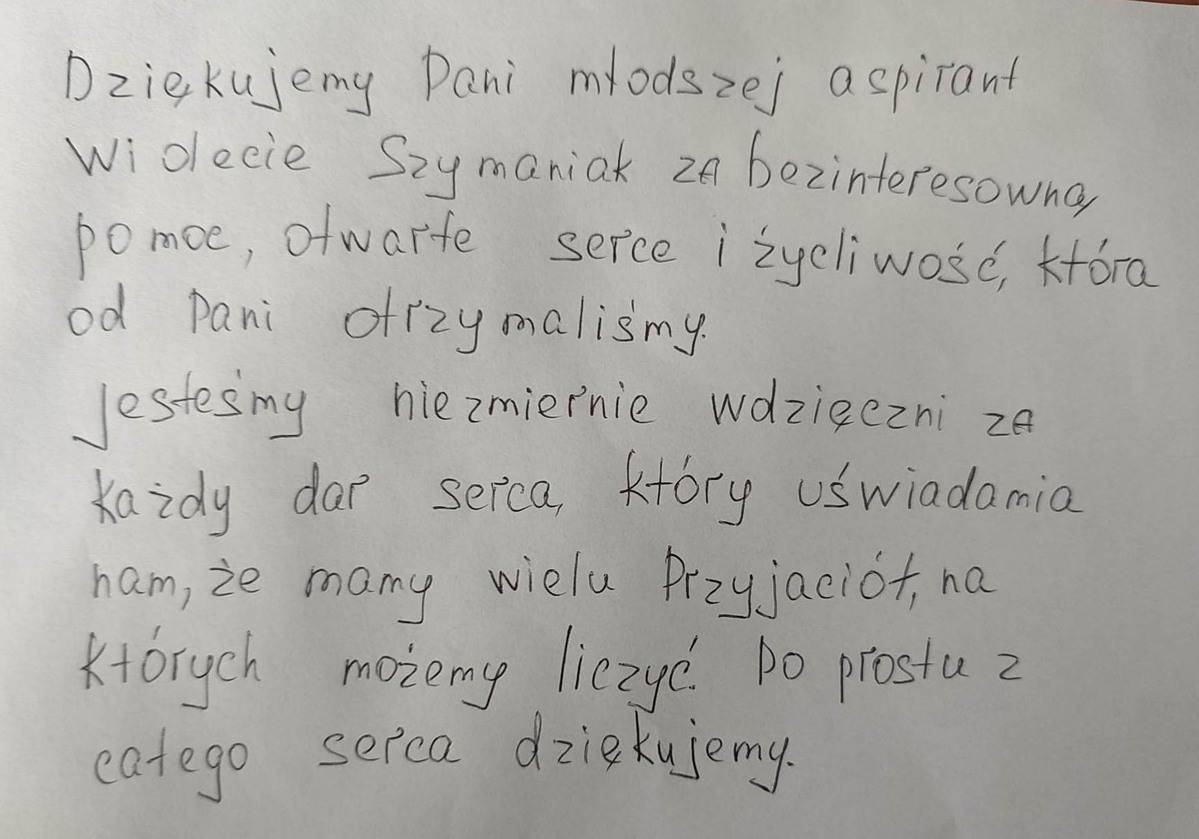 Dziękujemy Pani młodszej aspirant
Wiolecie Szymaniak za bezinteresowną
pomoc, otwarte serce i życzliwość, która
od Pani otrzymaliśmy.
Jesteśmy niezmiernie wdzięczni za
każdy dar serca, który uświadamia
nam, że mamy wielu Przyjaciół, na
których możemy liczyć. Po prostu z
całego serca dziękujemy.